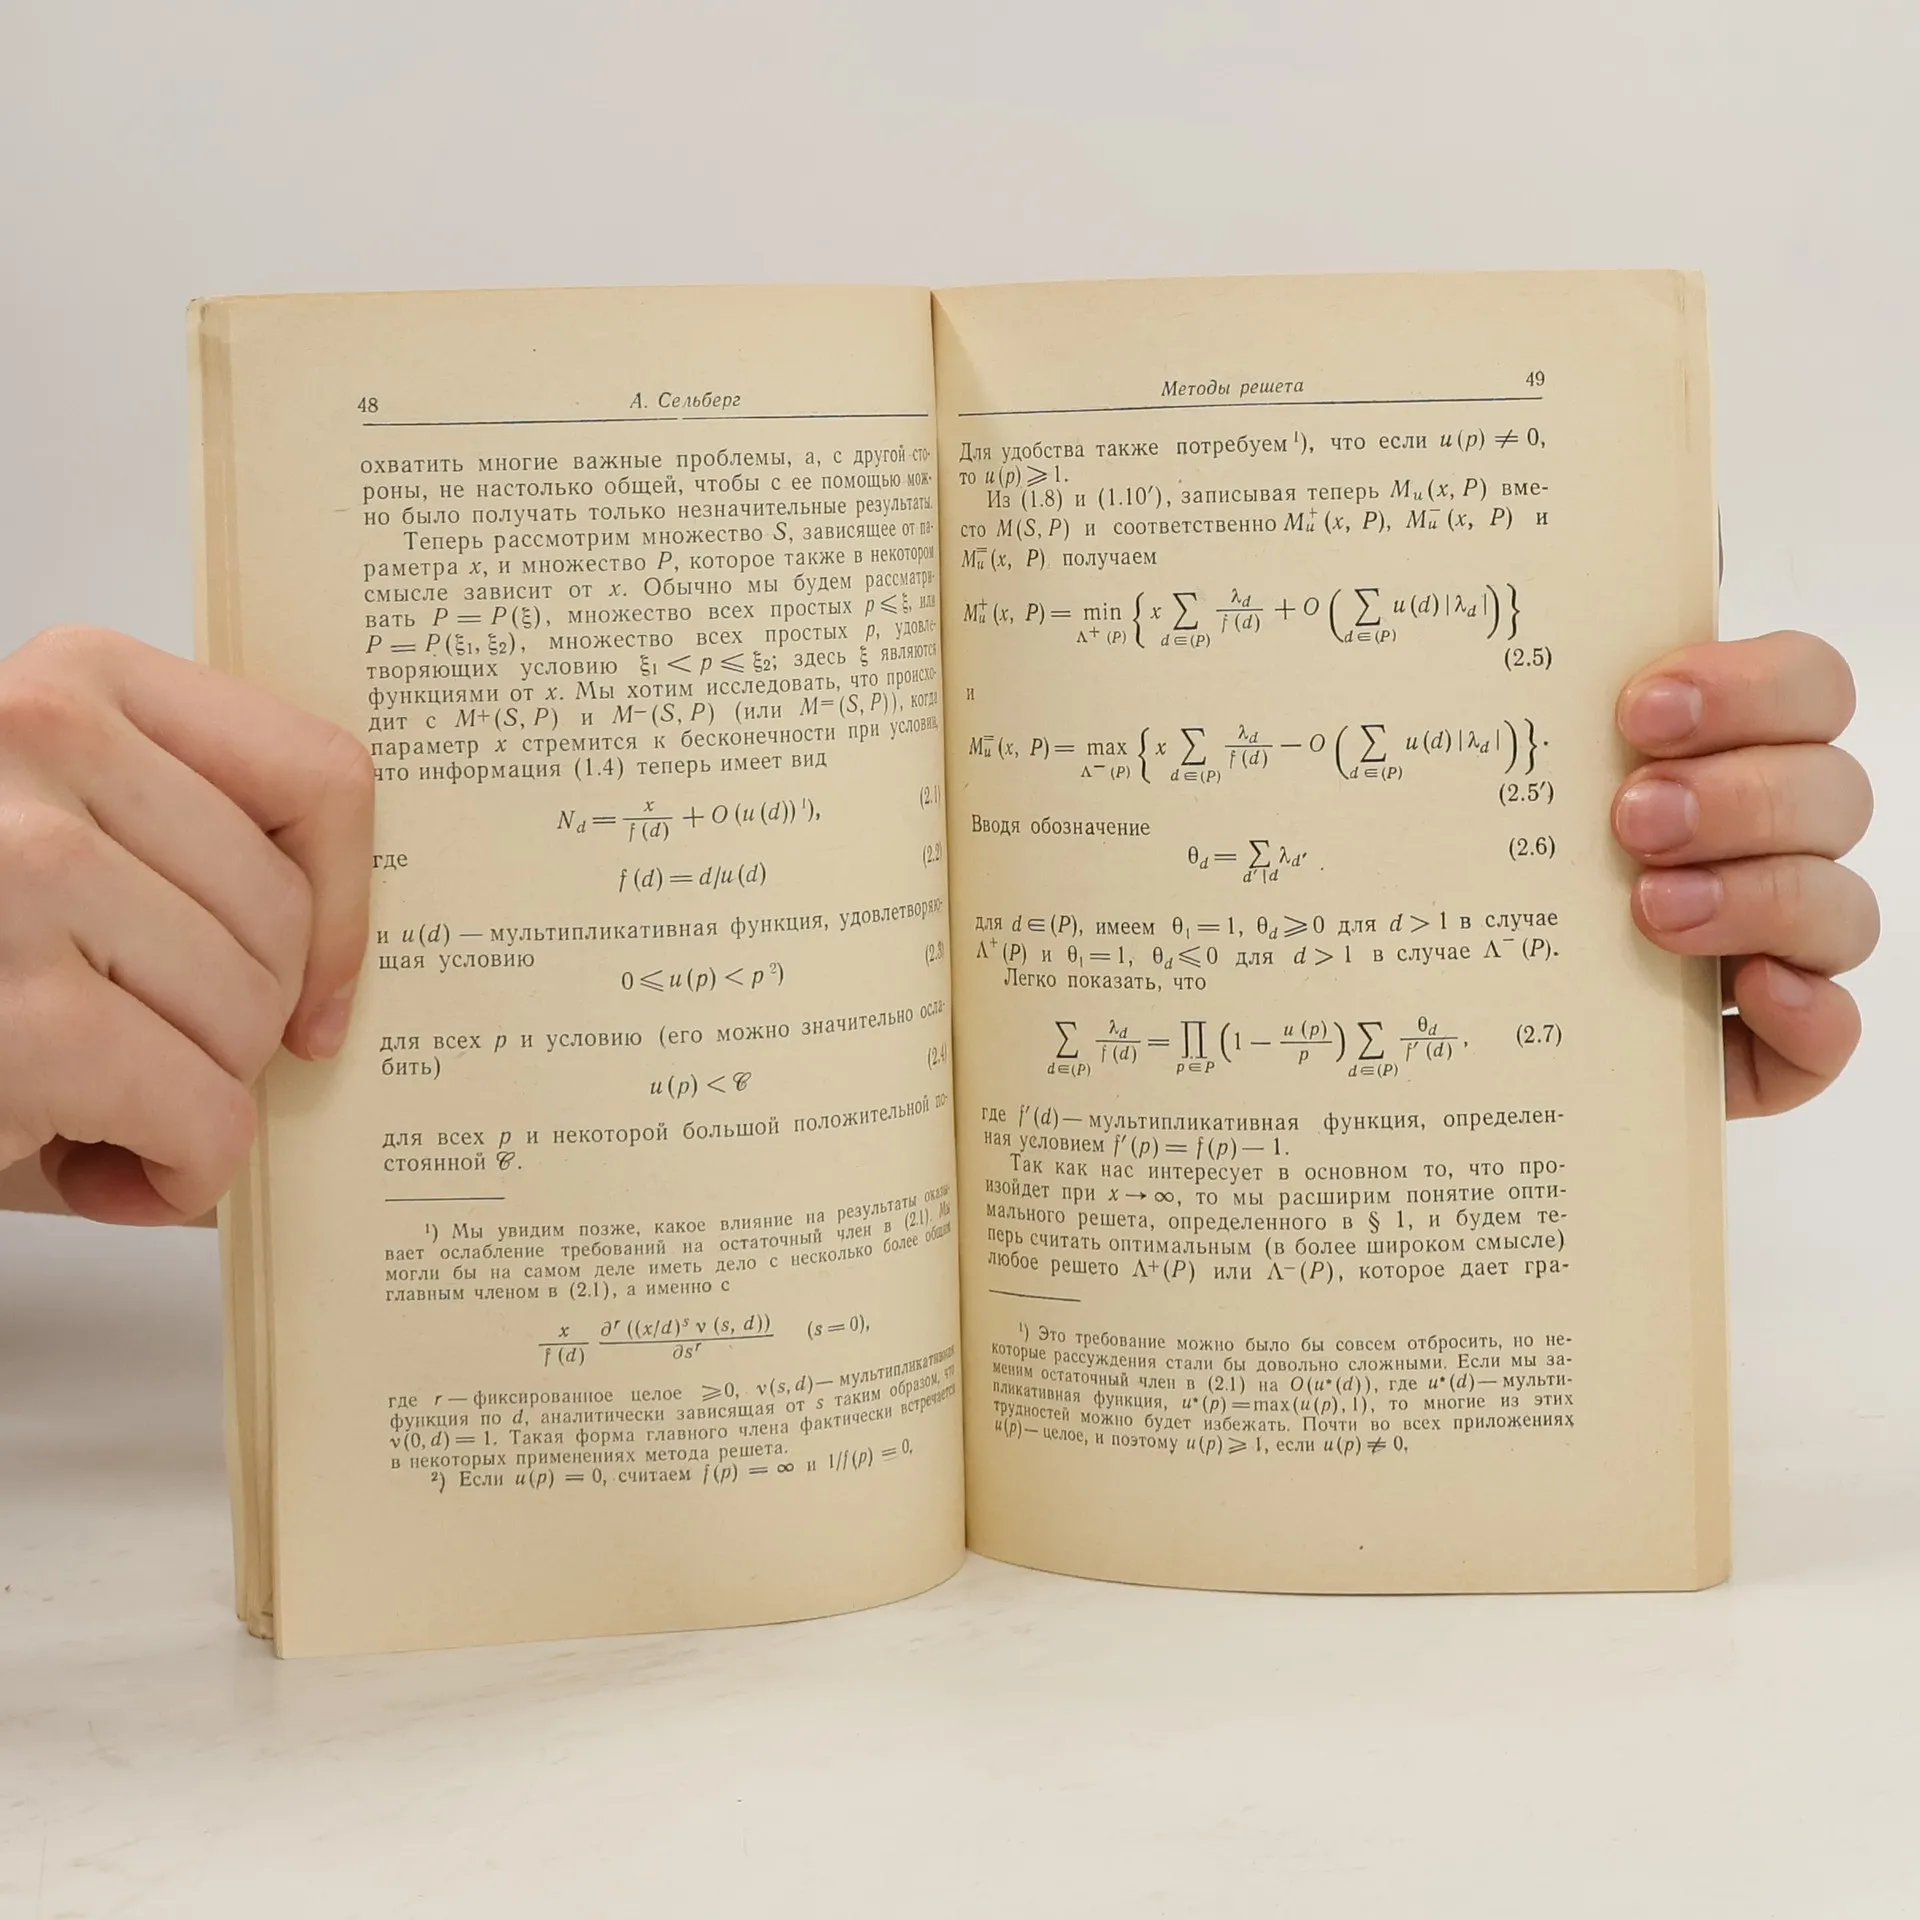 48 А. Сельберг
охватить многие важные проблемы, а, с другой сто-
роны, не настолько общей, чтобы с ее помощью мож-
но было получать только незначительные результаты.
Теперь рассмотрим множество S, зависящее от па-
раметра x, и множество P, которое также в некотором
смысле зависит от x. Обычно мы будем рассматри-
вать P = P(ξ), множество всех простых p ⩽ ξ, или
P = P(ξ₁, ξ₂), множество всех простых p, удовле-
творяющих условию ξ₁ < p ⩽ ξ₂; здесь ξ являются
функциями от x. Мы хотим исследовать, что происхо-
дит с M⁺(S, P) и M⁻(S, P) (или M⁼(S, P)), когда
параметр x стремится к бесконечности при условии,
что информация (1.4) теперь имеет вид
N_d = x / f (d) + O (u (d)) ¹), (2.1)
где
f (d) = d/u (d) (2.2)
и u (d) — мультипликативная функция, удовлетворяю-
щая условию
0 ⩽ u (p) < p ²) (2.3)
для всех p и условию (его можно значительно осла-
бить)
u (p) < 𝒞 (2.4)
для всех p и некоторой большой положительной по-
стоянной 𝒞.
¹) Мы увидим позже, какое влияние на результаты оказы-
вает ослабление требований на остаточный член в (2.1). Мы
могли бы на самом деле иметь дело с несколько более общим
главным членом в (2.1), а именно с
x / f (d) ∂ʳ ((x/d)ˢ ν (s, d)) / ∂sʳ (s = 0),
где r — фиксированное целое ⩾ 0, ν (s, d) — мультипликативная
функция по d, аналитически зависящая от s таким образом, что
ν (0, d) = 1. Такая форма главного члена фактически встречается
в некоторых применениях метода решета.
²) Если u (p) = 0, считаем f (p) = ∞ и 1/f (p) = 0,
Методы решета 49
Для удобства также потребуем ¹), что если u (p) ≠ 0,
то u (p) ⩾ 1.
Из (1.8) и (1.10′), записывая теперь M_u (x, P) вме-
сто M (S, P) и соответственно M_u⁺ (x, P), M_u⁻ (x, P) и
M_u⁼ (x, P), получаем
M_u⁺ (x, P) = min_{Λ⁺ (P)} { x ∑_{d∈(P)} λ_d / f (d) + O ( ∑_{d∈(P)} u (d) | λ_d | ) }
(2.5)
и
M_u⁼ (x, P) = max_{Λ⁻ (P)} { x ∑_{d∈(P)} λ_d / f (d) − O ( ∑_{d∈(P)} u (d) | λ_d | ) }.
(2.5′)
Вводя обозначение
θ_d = ∑_{d′ | d} λ_{d′} (2.6)
для d ∈ (P), имеем θ₁ = 1, θ_d ⩾ 0 для d > 1 в случае
Λ⁺ (P) и θ₁ = 1, θ_d ⩽ 0 для d > 1 в случае Λ⁻ (P).
Легко показать, что
∑_{d∈(P)} λ_d / f (d) = ∏_{p∈P} (1 − u (p) / p) ∑_{d∈(P)} θ_d / f′ (d), (2.7)
где f′ (d) — мультипликативная функция, определен-
ная условием f′ (p) = f (p) — 1.
Так как нас интересует в основном то, что про-
изойдет при x → ∞, то мы расширим понятие опти-
мального решета, определенного в § 1, и будем те-
перь считать оптимальным (в более широком смысле)
любое решето Λ⁺ (P) или Λ⁻ (P), которое дает гра-
¹) Это требование можно было бы совсем отбросить, но не-
которые рассуждения стали бы довольно сложными. Если мы за-
меним остаточный член в (2.1) на O (u* (d)), где u* (d) — мульти-
пликативная функция, u* (p) = max (u (p), 1), то многие из этих
трудностей можно будет избежать. Почти во всех приложениях
u (p) — целое, и поэтому u (p) ⩾ 1, если u (p) ≠ 0,